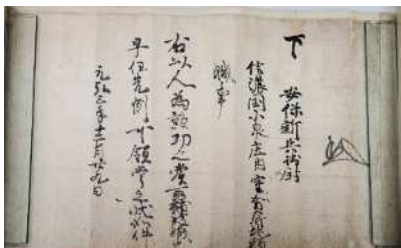 下 安保新兵衛尉
信濃国小泉庄内室賀郷地頭
職事
右以人為勲功之賞所補任也
早任先例可領掌之状如件
元弘三年十二月廿九日